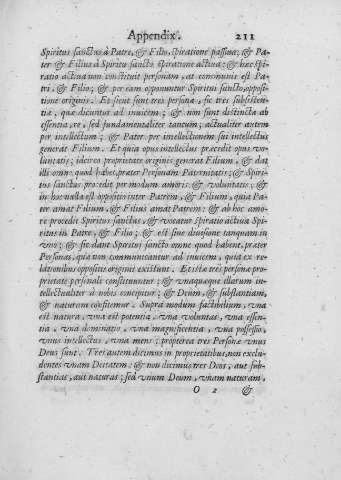 Appendix. 211
Spiritus sanctus à Patre, & Filio, spiratione passiua; & Pa-
ter & Filius à Spiritu sancto spiratione actiua; & hæc spi-
ratio actiua non constituit personam, at communis est Pa-
tri, & Filio; & per eam opponuntur Spiritui sancto, opposi-
tione originis. Et sicut sunt tres personæ, sic tres subsistent-
ia, quæ dicuntur ad inuicem; & non sunt distincta ab
essentia, re, sed fundamentaliter tantum; actualiter autem
per intellectum; & Pater per intellectionem sui intellectus
generat Filium. Et quia opus intellectus præcedit opus vo-
luntatis; idcirco proprietate originis generat Filium, & dat
illi omne quod habet, præter Personam Paternitatis; & Spiri-
tus sanctus procedit per modum amoris, & voluntatis, & 
in hac nulla est oppositio inter Patrem, & Filium, quia Pa-
ter amat Filium, & Filius amat Patrem: & ab hoc amo-
re procedit Spiritus sanctus, & vocatur spiratio actiua Spi-
ritus in Patre, & Filio; & est siue diuisione tanquam in
vno; & sic dant Spiritui sancto omne quod habent, præter
Personas, quia non communicantur ad inuicem, quia ex re-
lationibus oppositis originis existunt. Et istæ tres personæ pro-
prietate personali constituuntur; & vnaquæque illarum in-
tellectualiter à nobis concipitur; & Deum, & substantiam,
& naturam constituunt. Supra modum factibilem, vna
est natura, vna est potentia, vna voluntas, vna essen-
tia, vna dominatio, vna magnificentia, vna possessio,
vnus intellectus, vna mens; propterea tres Personæ vnus
Deus sunt. Tres autem dicimus in proprietatibus, non exclu-
dentes vnam Deitatem: & non dicimus tres Deos, aut sub-
stantias, aut naturas; sed vnum Deum, vnam naturam,
O 2 &